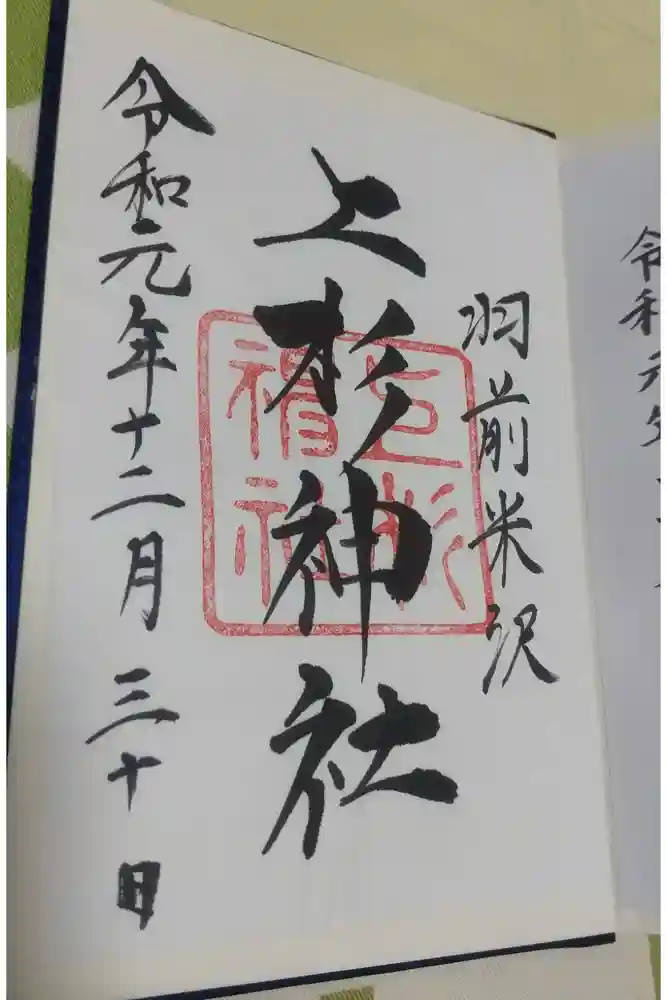 羽前米沢
上杉神社
令和元年十二月三十日
上杉神社
令和元年